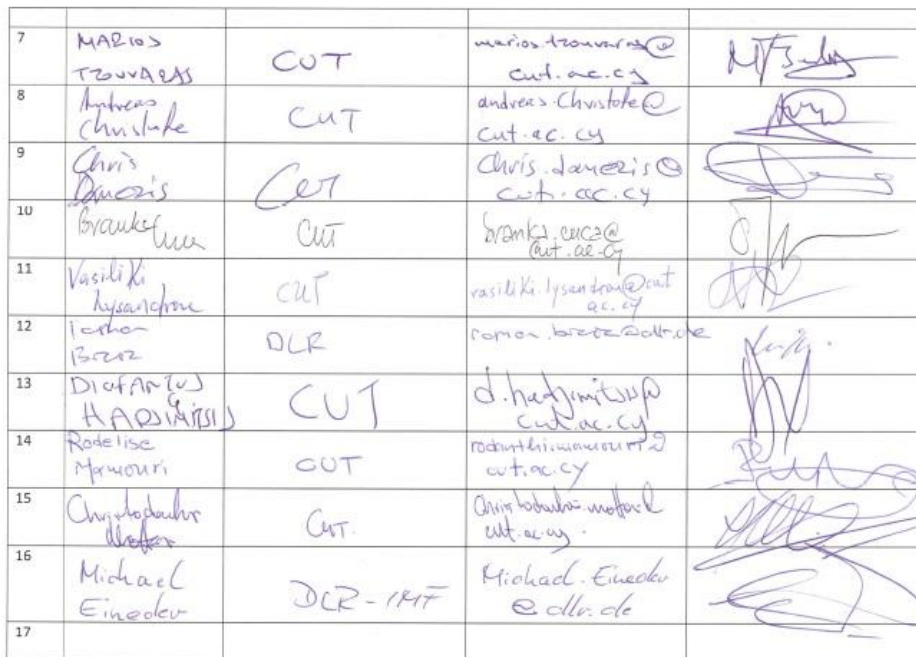 7 MARIOS TZOUVARAS CUT marios.tzouvaras@cut.ac.cy
8 Andreas Christofe CUT andreas.christofe@cut.ac.cy
9 Chris Danezis CUT Chris.danezis@cut.ac.cy
10 Branka Cuca CUT branka.cuca@cut.ac.cy
11 Vasiliki Lysandrou CUT vasiliki.lysandrou@cut.ac.cy
12 DLR
13 HADJIMITSIS CUT d.hadjimitsis@cut.ac.cy
14 Rodelise Mamouri CUT rodanthi.mamouri@cut.ac.cy
15 CUT.
16 Michael Eineder DLR-IMF Michael.Eineder@dlr.de
17